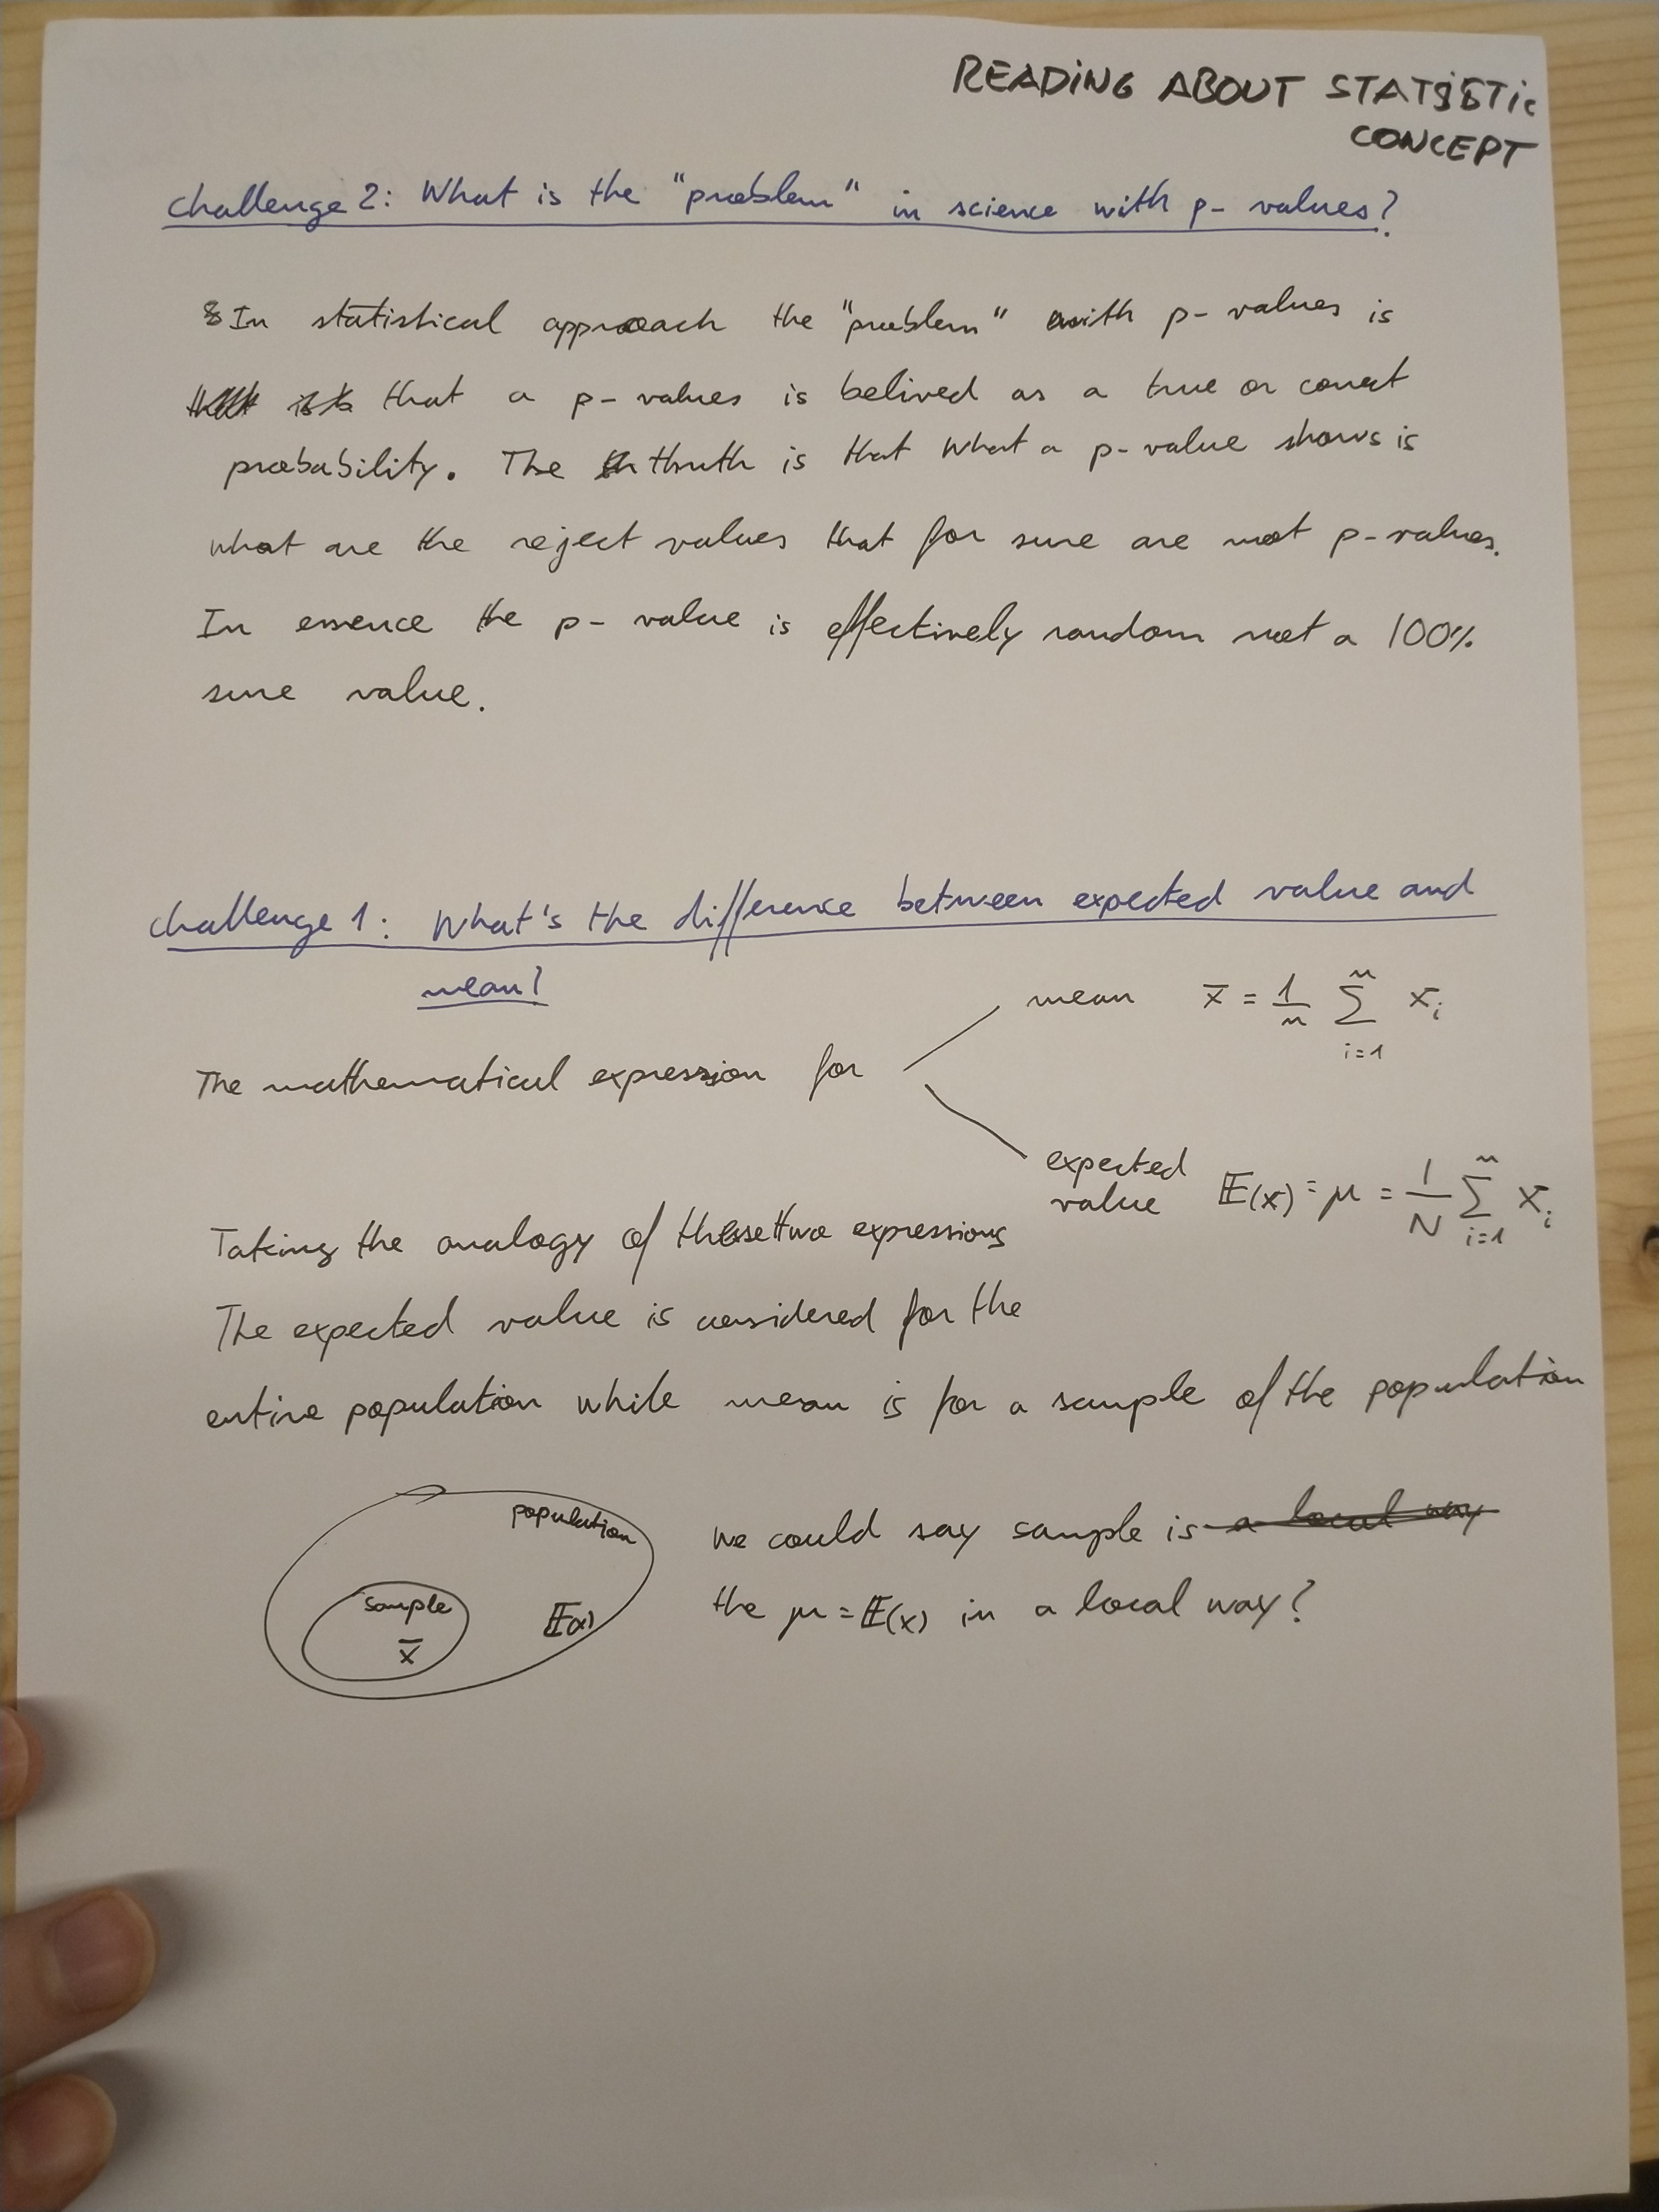 READING ABOUT STATISTIC
CONCEPT
challenge 2: What is the "problem" in science with p- values?
In statistical approach the "problem" with p- values is
that a p- values is belived as a true or corect
probability. The thruth is that what a p-value shows is
what are the reject values that for sure are not p-values.
In essence the p- value is effectively random not a 100%
sure value.
challenge 1: What's the difference between expected value and
mean?
mean x̄ = 1/n ∑ⁿᵢ₌₁ xᵢ
The mathematical expression for
expected
value 𝔼(x) = μ = 1/N ∑ⁿᵢ₌₁ xᵢ
Taking the analogy of these two expressions
The expected value is considered for the
entire population while mean is for a sample of the population
population
sample
x̄
𝔼(x)
we could say sample is a local way
the μ = 𝔼(x) in a local way?